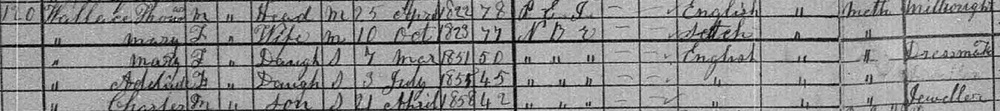 120 Wallace Thomas M " Head M 25 Apr 1822 78 P E I English " Meth Millwright
" Mary F " Wife M 10 Oct 1823 77 N B r Scotch " "
" Mary F " Daugh S 7 Mar 1851 50 " " " English " " Dressmak
" Adelaid F " Daugh S 3 July 1855 45 " " " " " "
" Charles M " Son S 21 April 1858 42 " " " " " " Jeweller